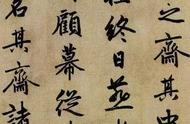 之齋其中
終日燕
顧幕從
名其齋諸